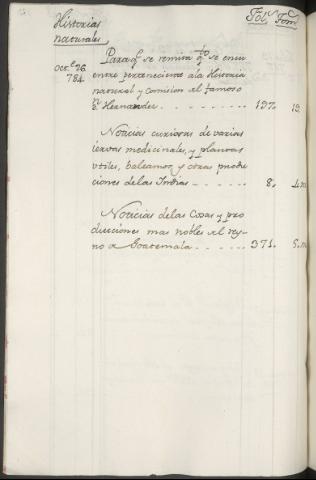 Historias
naturales
Fol.s Tom.
Oct.e 26
784
Para q.e se remita q.to se encu
entre perteneciente a la Historia
natural y comision del famoso
D.n Hernandez . . . . . . . . 197. 19.
Noticias curiosas de varias
iervas medicinales, y plantas
vtiles, balsamos y otras produ
ciones de las Indias . . . . . . 8. 4.m
Noticias de las Cosas y pro
ducciones mas nobles del rey-
no de Goatemala . . . . . . 371. 5.m